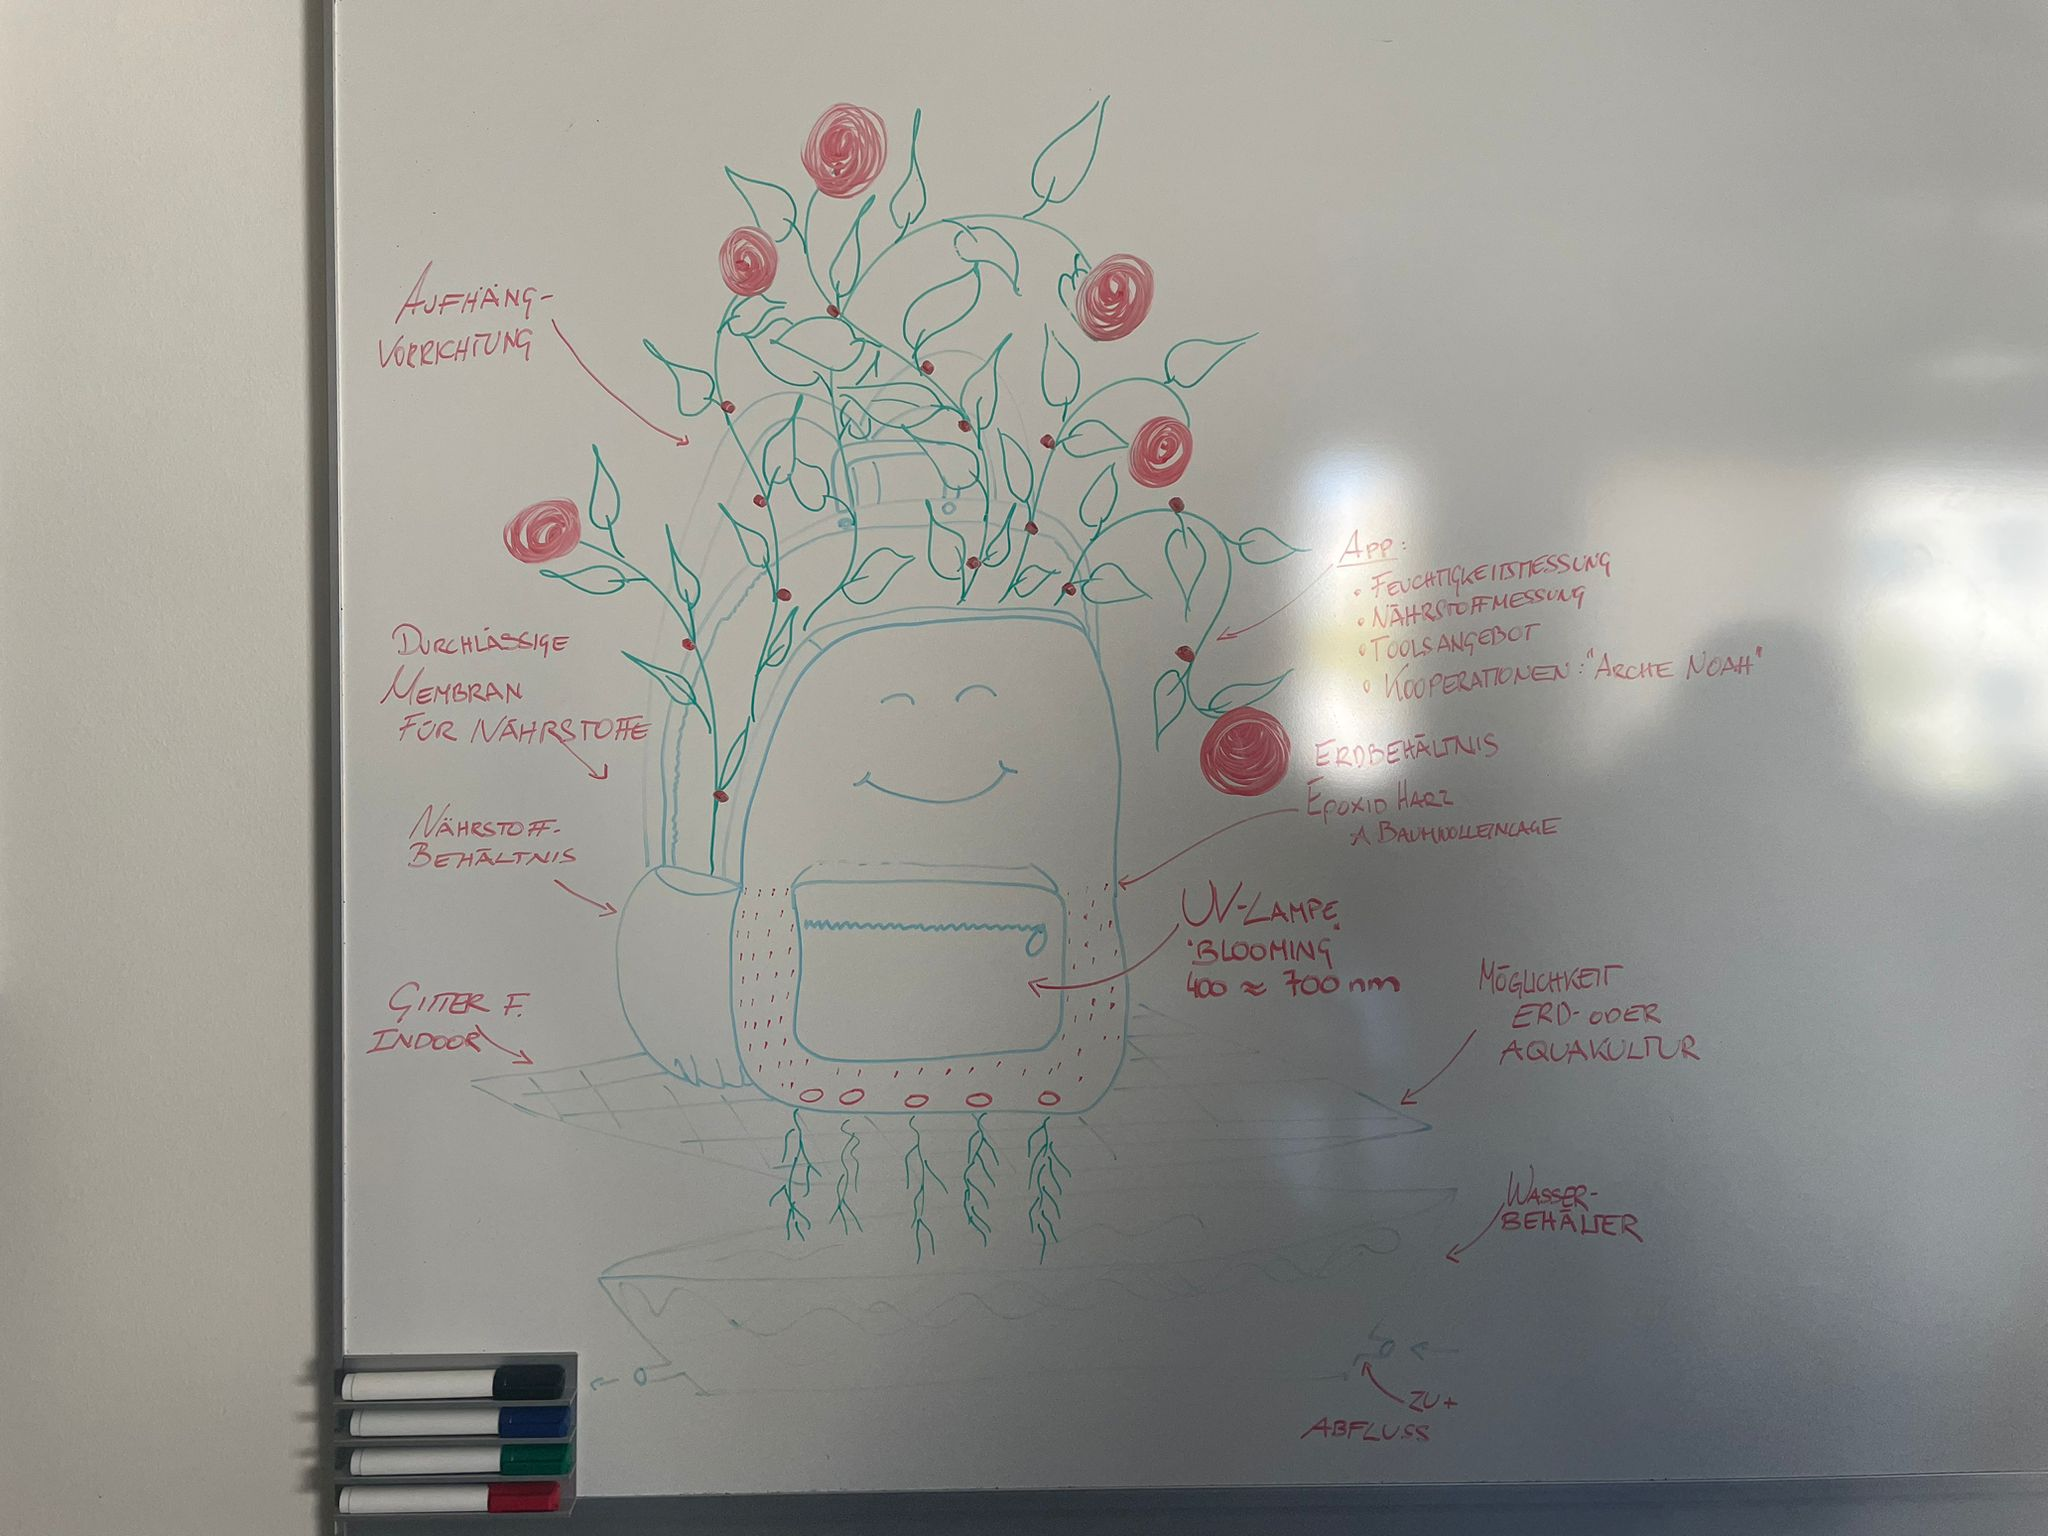 AUFHÄNG-
VORRICHTUNG
DURCHLÄSSIGE
MEMBRAN
FÜR NÄHRSTOFFE
NÄHRSTOFF-
BEHÄLTNIS
GITTER F.
INDOOR
APP:
• FEUCHTIGKEITSMESSUNG
• NÄHRSTOFFMESSUNG
• TOOLSANGEBOT
• KOOPERATIONEN: "ARCHE NOAH"
ERDBEHÄLTNIS
EPOXID HARZ
BAUMWOLLEINLAGE
UV-LAMPE
"BLOOMING"
400 ≈ 700 nm
MÖGLICHKEIT
ERD- ODER
AQUAKULTUR
WASSER-
BEHÄLTER
ZU +
ABFLUSS